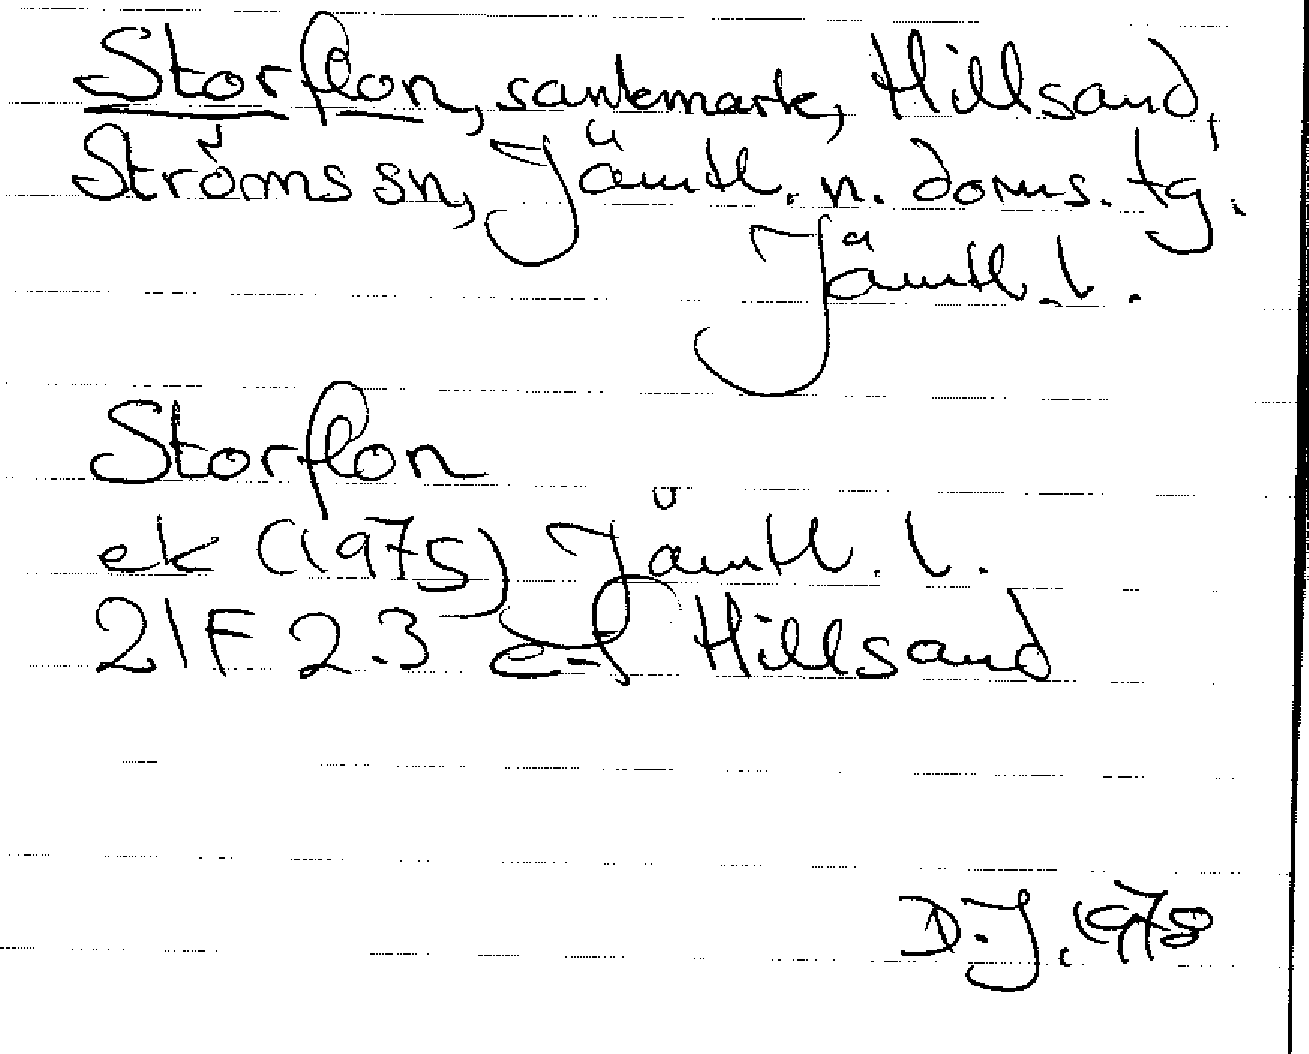 Storflon, sankmark, Hillsand,
Ströms sn, Jämtl. n. doms. tg.
Jämtl. l.
Storflon
ek (1975) Jämtl. l.
21F 2-3 e-f Hillsand
D.J. 1978